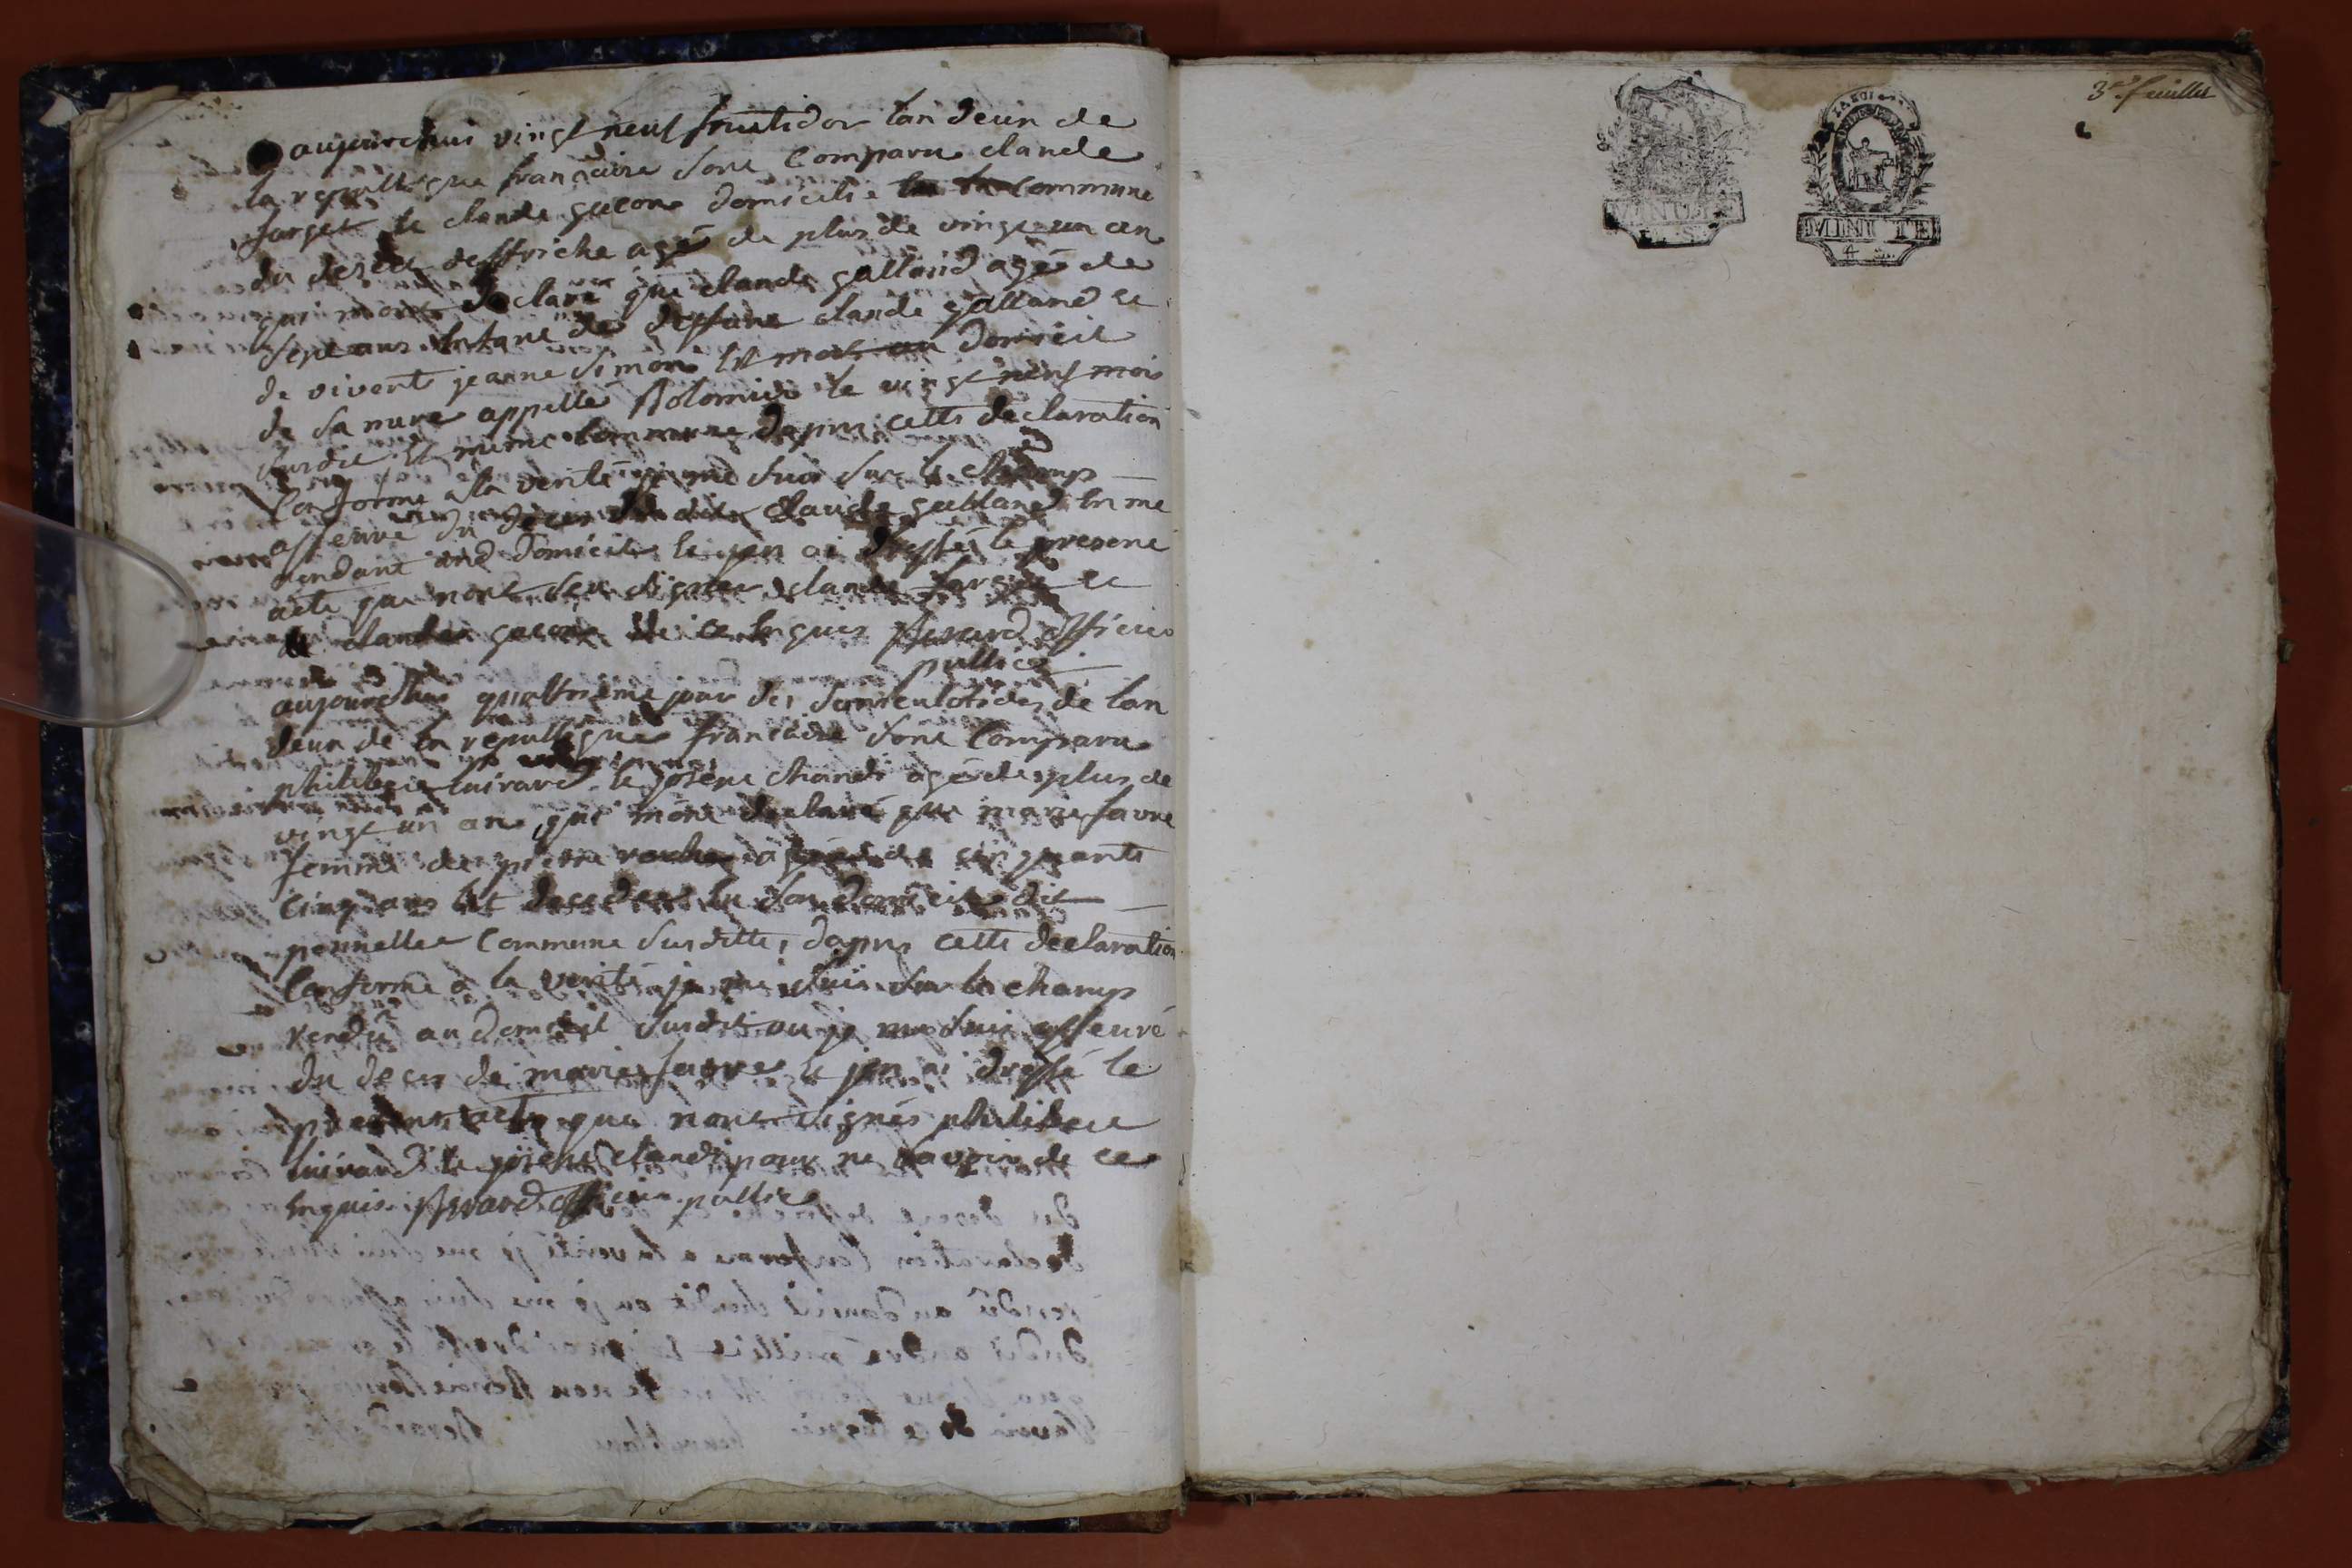 aujourdhui vingt neuf fruitidor lan deun de
la republique francaise sont Comparu claude
farget et claude gucon domicilie en la commune
du desert deffriche agé de plus de vingt un an
qui mont declaré que claude galland agé de
sept ans enfant de deffunt claude galland et
de vivente jeanne Simon est mort au domicil
de sa mere appellé le vingt neuf mois
susdit et meme commune dapres cette declaration
Conforme a la verité je me suis sur le champ
asseuré du deces dudit claude galland en me
rendant aud domicile et jen ai dressé le present
acte que nont seu signer claude farget et
claude gucon de ce enquis Berard officier
public
aujourdhui quattrieme jour des sanculotides de lan
deun de la republique francaise sont Comparu
philibert luirard et joseph chandi agé de plus de
vingt un an qui mont declaré que marie favre
femme de pierre agée de cinquante
cinq ans est decedeé en son domicile dit
pennellee Commune susditte, dapres cette declaration
Conforme a la verité je me suis sur le champ
rendu au domicil susdit ou je me suis asseuré
du deces de marie favre et jen ai dressé le
present acte que nont signés philibert
luirard et joseph chandi pour ne savoir de ce
enquis Berard officier public
3e feuillet
MINUTE
4 S.
MINUTE